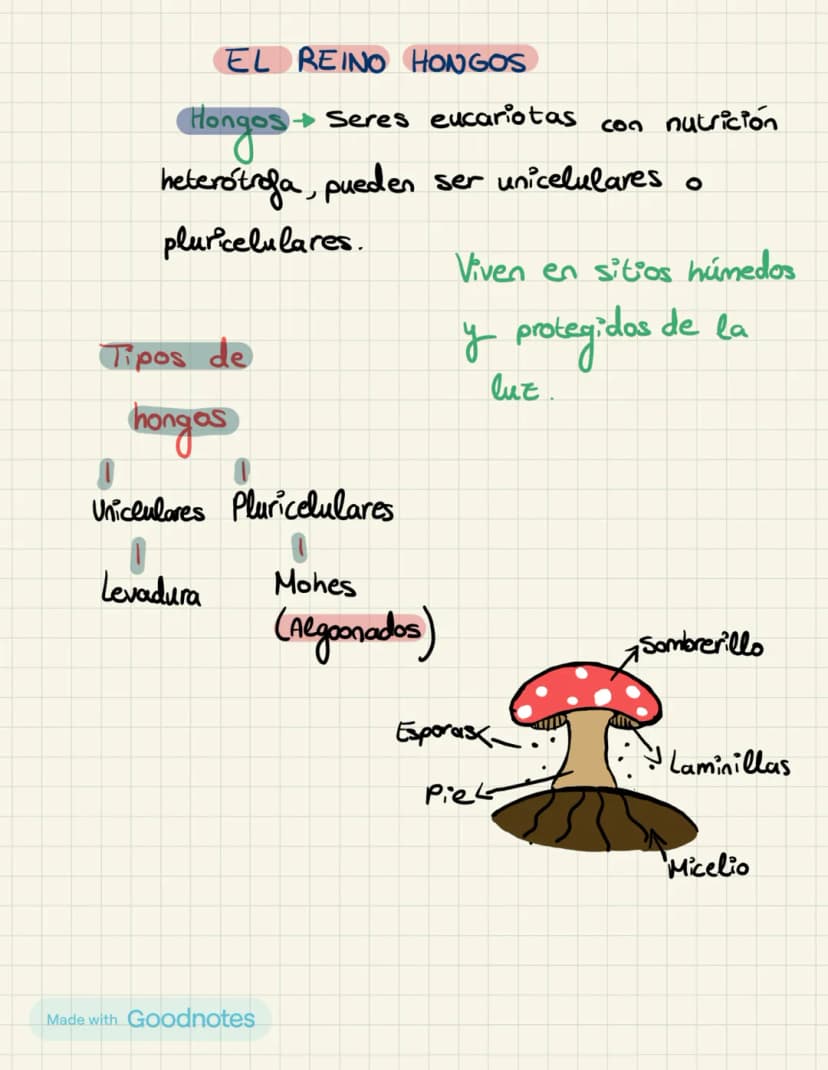 EL REINO HONGOS
Hongos → Seres eucariotas con nutrición
heterótrofa, pueden ser unicelulares o
pluricelulares.
Viven en sitios húmedos
y protegidos de la
luz.
Tipos de
hongos
Uniclulares Pluricelulares
Levadura
Mohes
(Algoonados)
Sombrerillo
Esporas
Laminillas
Pie
Micelio
Made with Goodnotes